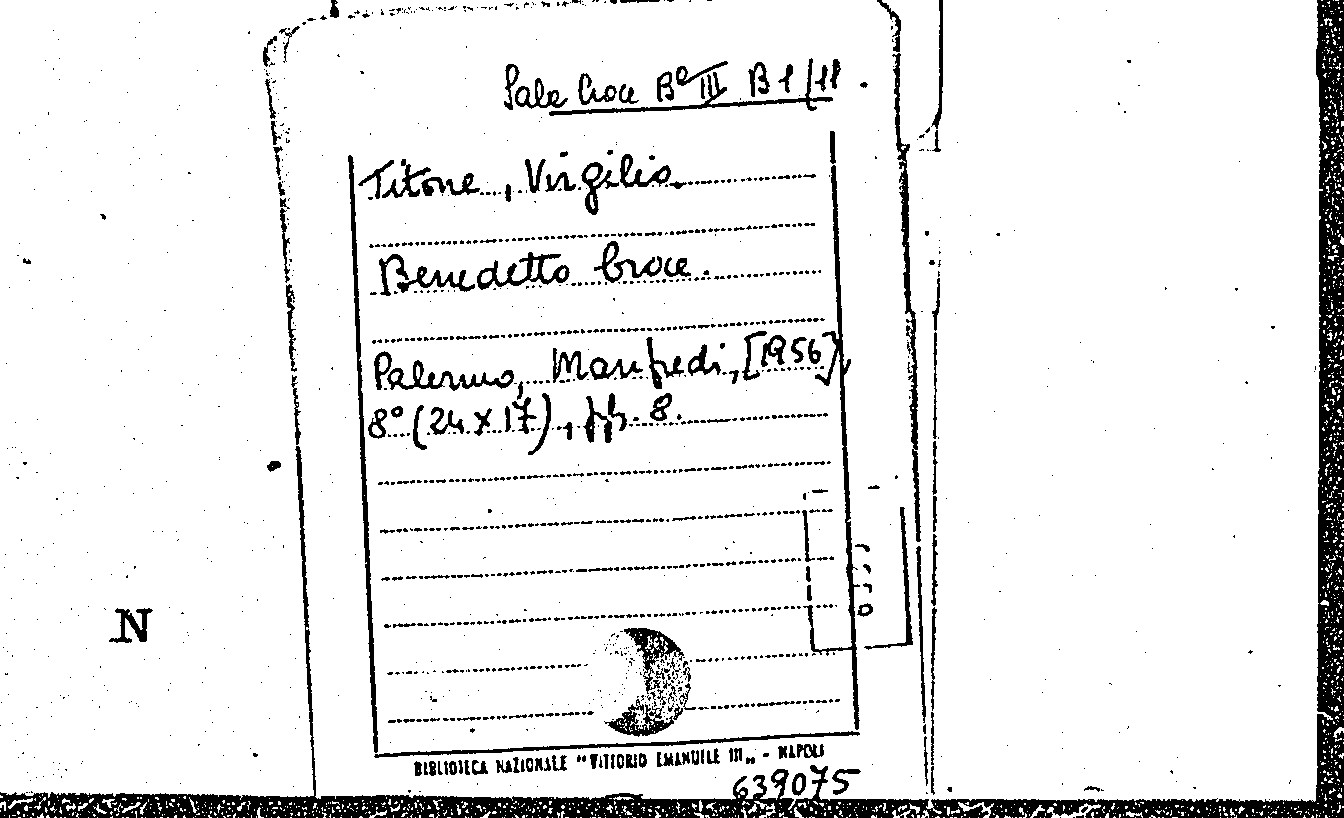 Sala Croce Bº III B 1/11.
Titone, Virgilio.
Benedetto Croce.
Palermo, Manfredi, [1956],
8º (24 x 17), pp. 8.
N
BIBLIOTECA NAZIONALE "VITTORIO EMANUELE III„ - NAPOLI
639075